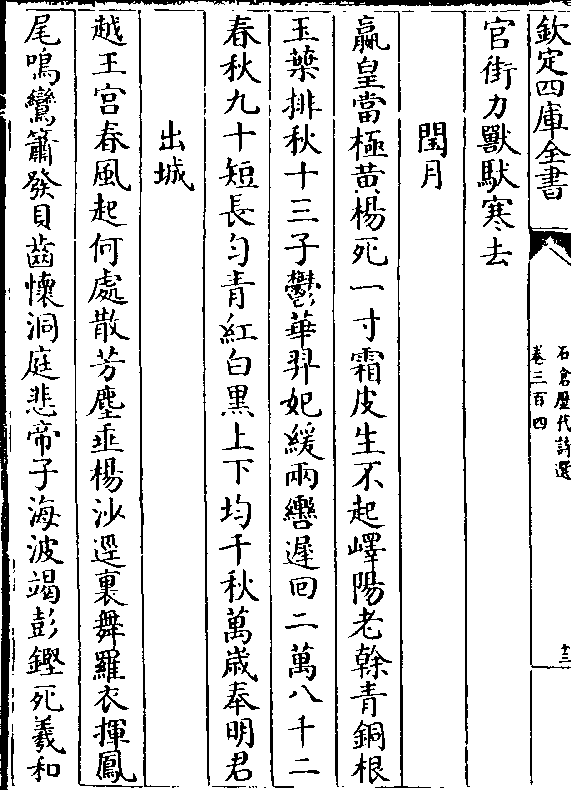 欽定四庫全書
石倉歷代詩選
卷三百四
十三
官街力獸馱寒去
閏月
嬴皇當極黄楊死一寸霜皮生不起嶧陽老榦青銅根
玉葉排秋十三子鬱華羿妃緩兩轡遲回二萬八千二
春秋九十短長勻青紅白黒上下均千秋萬歳奉明君
出城
越王宫春風起何處散芳塵垂楊沙逕裏舞羅衣揮鳳
尾鳴鸞簫發貝齒懷洞庭悲帝子海波竭彭鏗死羲和